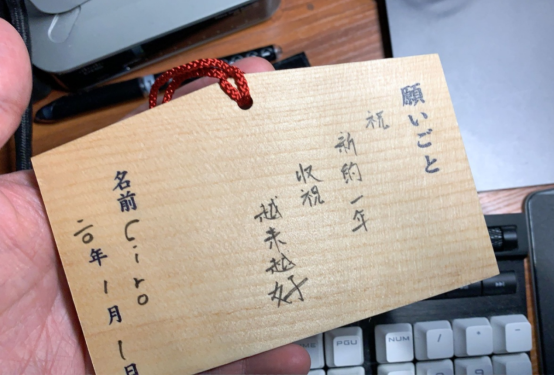 願いごと
祝
新的一年
收视
越来越好
名前 Ciro
二〇年1月1日
PGU
NUM
/
*
-